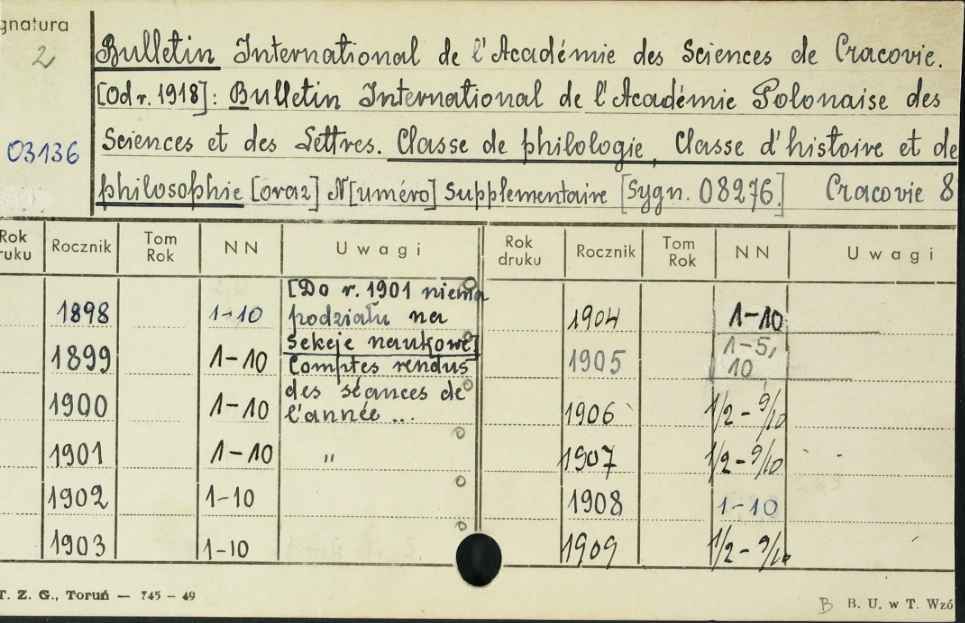 gnatura
2
03136
Bulletin International de l'Académie des Sciences de Cracovie.
[Od r. 1918]: Bulletin International de l'Académie Polonaise des
Sciences et des Lettres. Classe de philologie, Classe d'histoire et de
philosophie [oraz] N[uméro] Supplementaire [Sygn. 08276.] Cracovie 8
Rok ruku Rocznik Tom Rok NN Uwagi Rok druku Rocznik Tom Rok NN Uwagi
1898 1-10 [Do r. 1901 niema podziału na 1904 1-10
1899 1-10 Sekcje naukowe] Comptes rendus 1905 1-5, 10
1900 1-10 des séances de l'année ... 1906 1/2-9/10
1901 1-10 " 1907 1/2-9/10
1902 1-10 1908 1-10
1903 1-10 1909 1/2-9/10
T. Z. G., Toruń — 745 - 49
B B. U. w T. Wzó